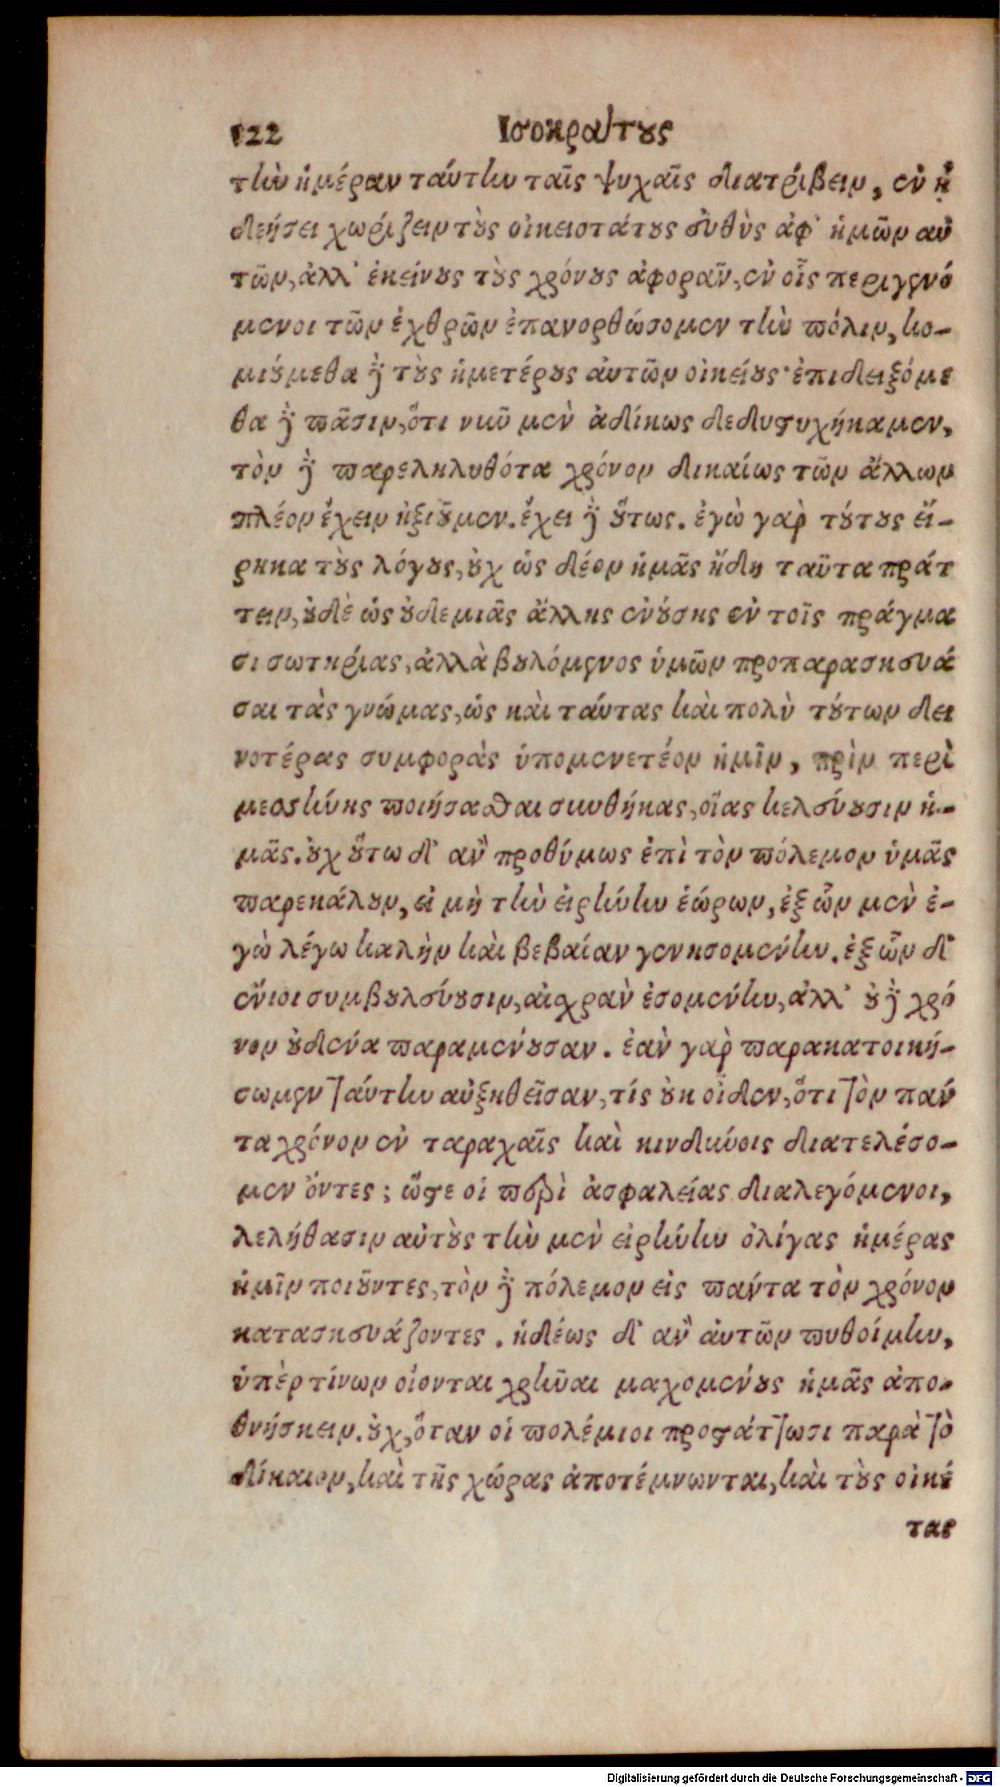 122 Ισοκράτους
τὴν ἡμέραν ταύτην ταῖς ψυχαῖς διατρίβειν, ἐν ᾗ
δεήσει χωρίζειν τοὺς οἰκειοτάτους εὐθὺς ἀφ' ἡμῶν αὐ
τῶν, ἀλλ' ἐκείνους τοὺς χρόνους ἀφορᾶν, ἐν οἷς περιγενό
μενοι τῶν ἐχθρῶν ἐπανορθώσομεν τὴν πόλιν, κο-
μιούμεθα δὲ τοὺς ἡμετέρους αὐτῶν οἰκείους· ἐπιδειξόμε
θα δὲ πᾶσιν, ὅτι νῦν μὲν ἀδίκως δεδυστυχήκαμεν,
τὸν δὲ παρεληλυθότα χρόνον δικαίως τῶν ἄλλων
πλέον ἔχειν ἠξιοῦμεν. ἔχει δὲ οὕτως. ἐγὼ γὰρ τούτους εἴ-
ρηκα τοὺς λόγους, οὐχ ὡς δέον ἡμᾶς ἤδη ταῦτα πράτ
τειν, οὐδὲ ὡς οὐδεμιᾶς ἄλλης ἐνούσης ἐν τοῖς πράγμα
σι σωτηρίας, ἀλλὰ βουλόμενος ὑμῶν προπαρασκευά
σαι τὰς γνώμας, ὡς καὶ ταύτας καὶ πολὺ τούτων δει
νοτέρας συμφορὰς ὑπομενετέον ἡμῖν, πρὶν περὶ
μεσσήνης ποιήσασθαι συνθήκας, οἵας κελεύουσιν ἡ-
μᾶς. οὐχ οὕτω δ' ἂν προθύμως ἐπὶ τὸν πόλεμον ὑμᾶς
παρεκάλουν, εἰ μὴ τὴν εἰρήνην ἑώρων, ἐξ ὧν μὲν ἐ-
γὼ λέγω καλὴν καὶ βεβαίαν γενησομένην. ἐξ ὧν δ'
ἔνιοι συμβουλεύουσιν, αἰσχρὰν ἐσομένην, ἀλλ' οὐδὲ χρό
νον οὐδένα παραμένουσαν. ἐὰν γὰρ παρακατοικί-
σωμεν ταύτην αὐξηθεῖσαν, τίς οὐκ οἶδεν, ὅτι τὸν πάν
τα χρόνον ἐν ταραχαῖς καὶ κινδύνοις διατελέσο-
μεν ὄντες; ὥστε οἱ περὶ ἀσφαλείας διαλεγόμενοι,
λελήθασιν αὑτοὺς τὴν μὲν εἰρήνην ὀλίγας ἡμέρας
ἡμῖν ποιοῦντες, τὸν δὲ πόλεμον εἰς πάντα τὸν χρόνον
κατασκευάζοντες. ἡδέως δ' ἂν αὐτῶν πυθοίμην,
ὑπὲρ τίνων οἴονται χρῆναι μαχομένους ἡμᾶς ἀπο-
θνήσκειν. οὐχ, ὅταν οἱ πολέμιοι προστάττωσι παρὰ τὸ
δίκαιον, καὶ τῆς χώρας ἀποτέμνωνται, καὶ τοὺς οἰκέ
τας
Digitalisierung gefördert durch die Deutsche Forschungsgemeinschaft - DFG